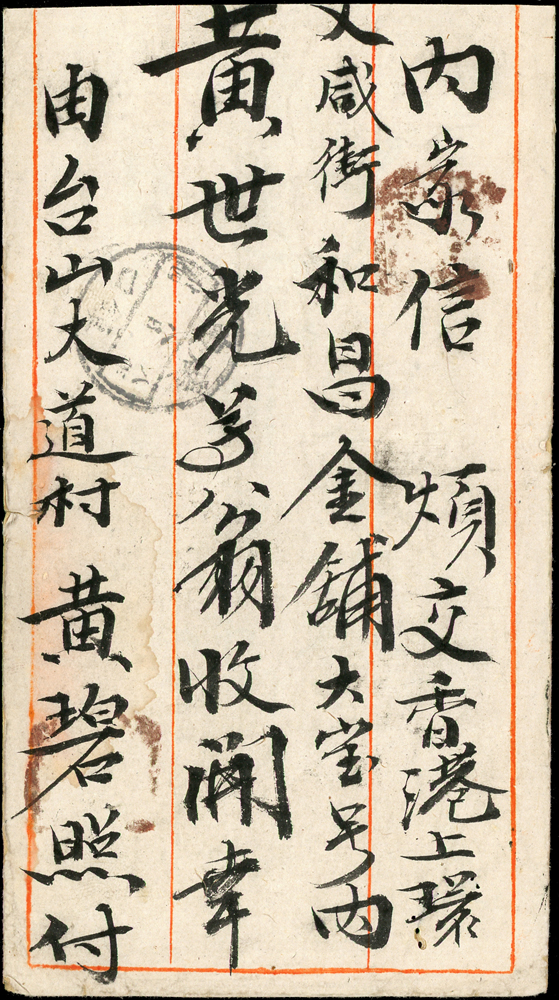 内家信 煩交香港上環
文咸街和昌金舖大宝号内
黄世光等翁收開幸
由台山大道村 黄碧照付